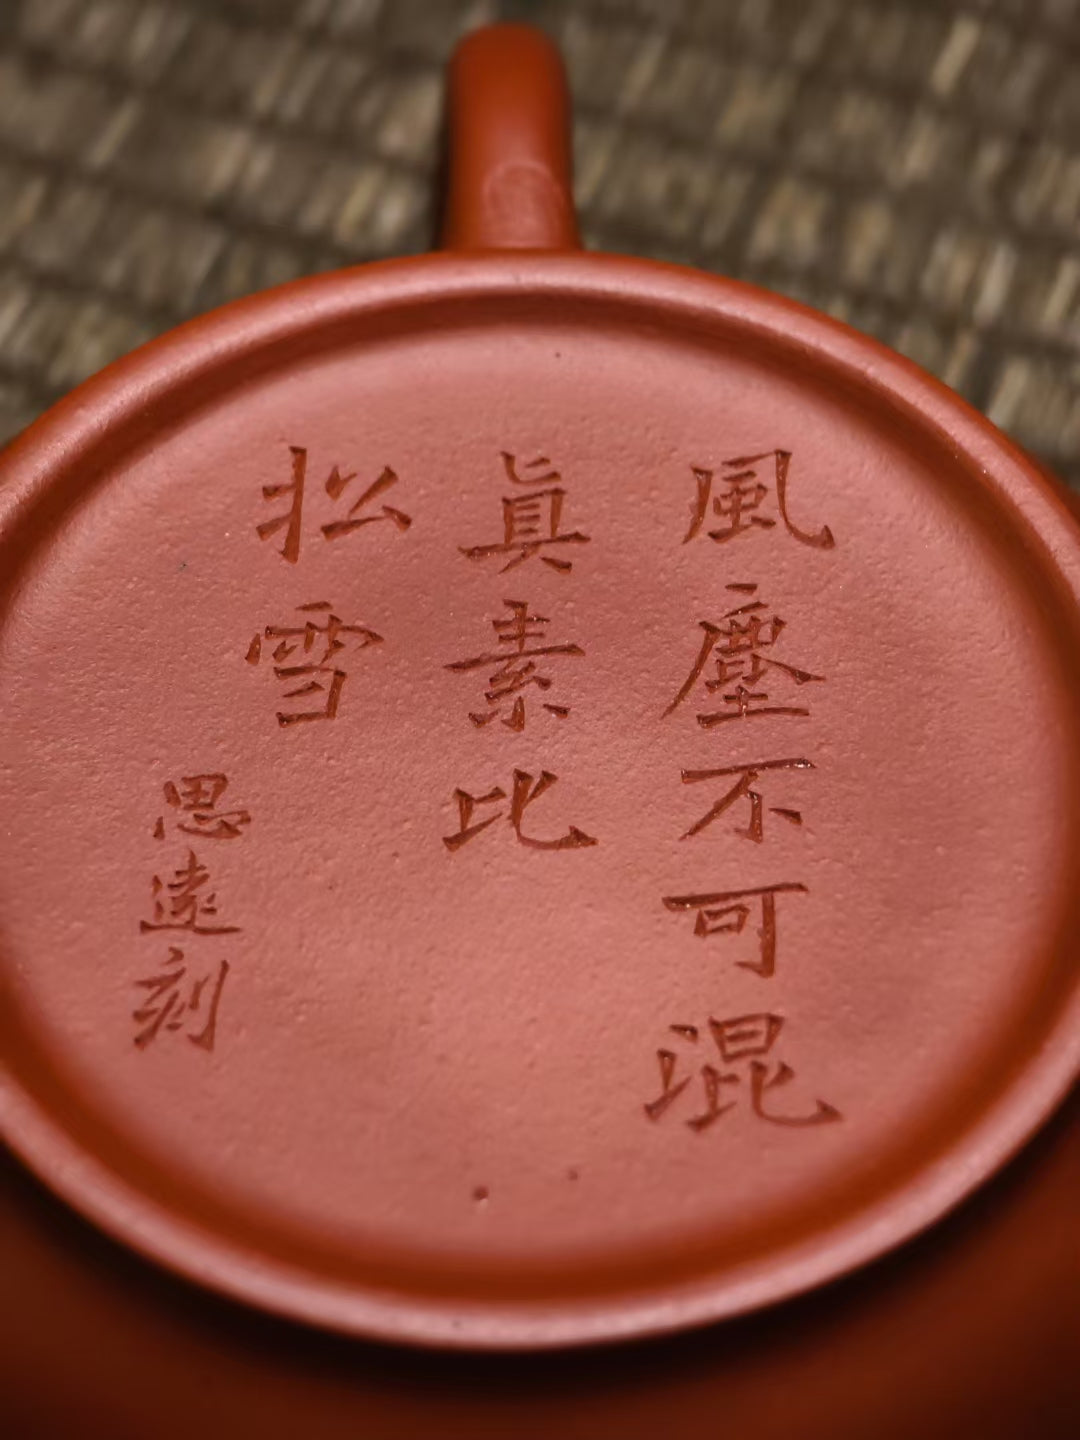 風塵不可混
真素比
松雪
思遠刻